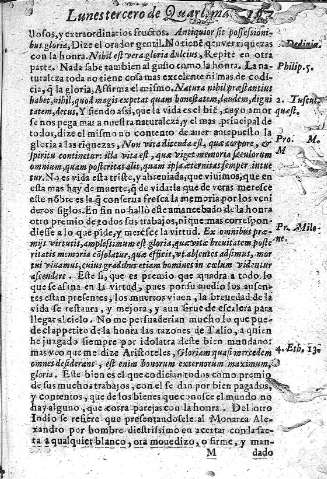 Lunes tercero de Quaresma. 187
llosos, y extraordinarios fructos. Antiquior sit possessioni-
bus gloria, Dize el orador gentil. No tiene que ver riquezas
con la honra. Nihil est vera gloria dulcius, Repite en otra
parte. Nada sabe tambien al gusto como la honra. La na-
turaleza toda no tiene cosa mas excelente ni mas de codi-
cia, que la gloria, Affirma el mismo. Natura nihil præstantius
habet, nihil, quod magis expetat quam honestatem, laudem, digni
tatem, decus. Y siendo assi, que la vida es el biē, cuyo amor
se nos pega mas a nuestra naturaleza, y el mas principal de
todos, dize el mismo no contento de auer antepuesto la
gloria a las riquezas, Non vita dicenda est, quæ corpore, &
spiritu continetur: illa vita est, quæ viget memoria sæculorum
omnium, quam posteritas alit, quam ipsa æternitas semper intue
tur. No es vida esta triste, y abreuiada, que viuimos, que en
esta mas hay de muerte, que de vida: la que de veras merece
este nōbre es la que conserua fresca la memoria por los veni
deros siglos. En fin no hallò este amancebado de la honra
otro premio de todos sus trabajos, ni que mas correspon-
diesse a lo que pide, y merésce la virtud. Ex omnibus præ-
mijs virtutis, amplissimum est gloria, quæ vitæ breuitatem poste
ritatis memoria cōsolatur, quæ efficit, vt absentes adsimus, mor
tui viuamus, cuius gradibus etiam homines in cælum videntur
ascendere. Este si, que es precio que quadra a todo lo
que se afina en la virtud, pues por su medio los ausen-
tes estan presentes, los muertos viuen, la breuedad de la
vida se restaura, y mejora, y aun sirue de escalera para
llegar al cielo. No me persuaderian mucho lo que pue-
de el appetito de la honra las razones de Tulio, a quien
he juzgado siempre por idolatra deste bien mundano:
mas veo que me dize Aristoteles, Gloriam quasi mercedem
omnes desiderant, est enim bonorum externorum maximum,
gloria. Este bien es el que codician todos como premio
de sus muchos trabajos, con el se dan por bien pagados,
y contentos, que de los bienes que conosce el mundo no
hay alguno, que corra parejas con la honra. Del otro
Indio se refiere que presentandosele al Monarca Ale-
xandro por hombre diestrissimo en acertar con la sae-
ta a qualquier blanco, ora mouedizo, o firme, y man-
M dado
Philip. 5.
2. Tuscul.
quæst.
Pro. M.
M
Pr. Milo-
ne.
4. Eth. 13.